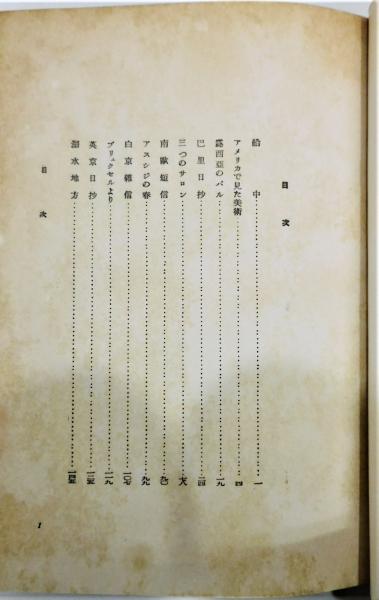 目次
船中……一
アメリカで見た美術……四
露西亞のバル……一九
巴里日抄……二四
三つのサロン……六八
南歐短信……
アスシジの春……九九
白京雜信……一〇七
ブリュクセルより……一一九
英京日抄……一三五
湖水地方……一四五
目次
1